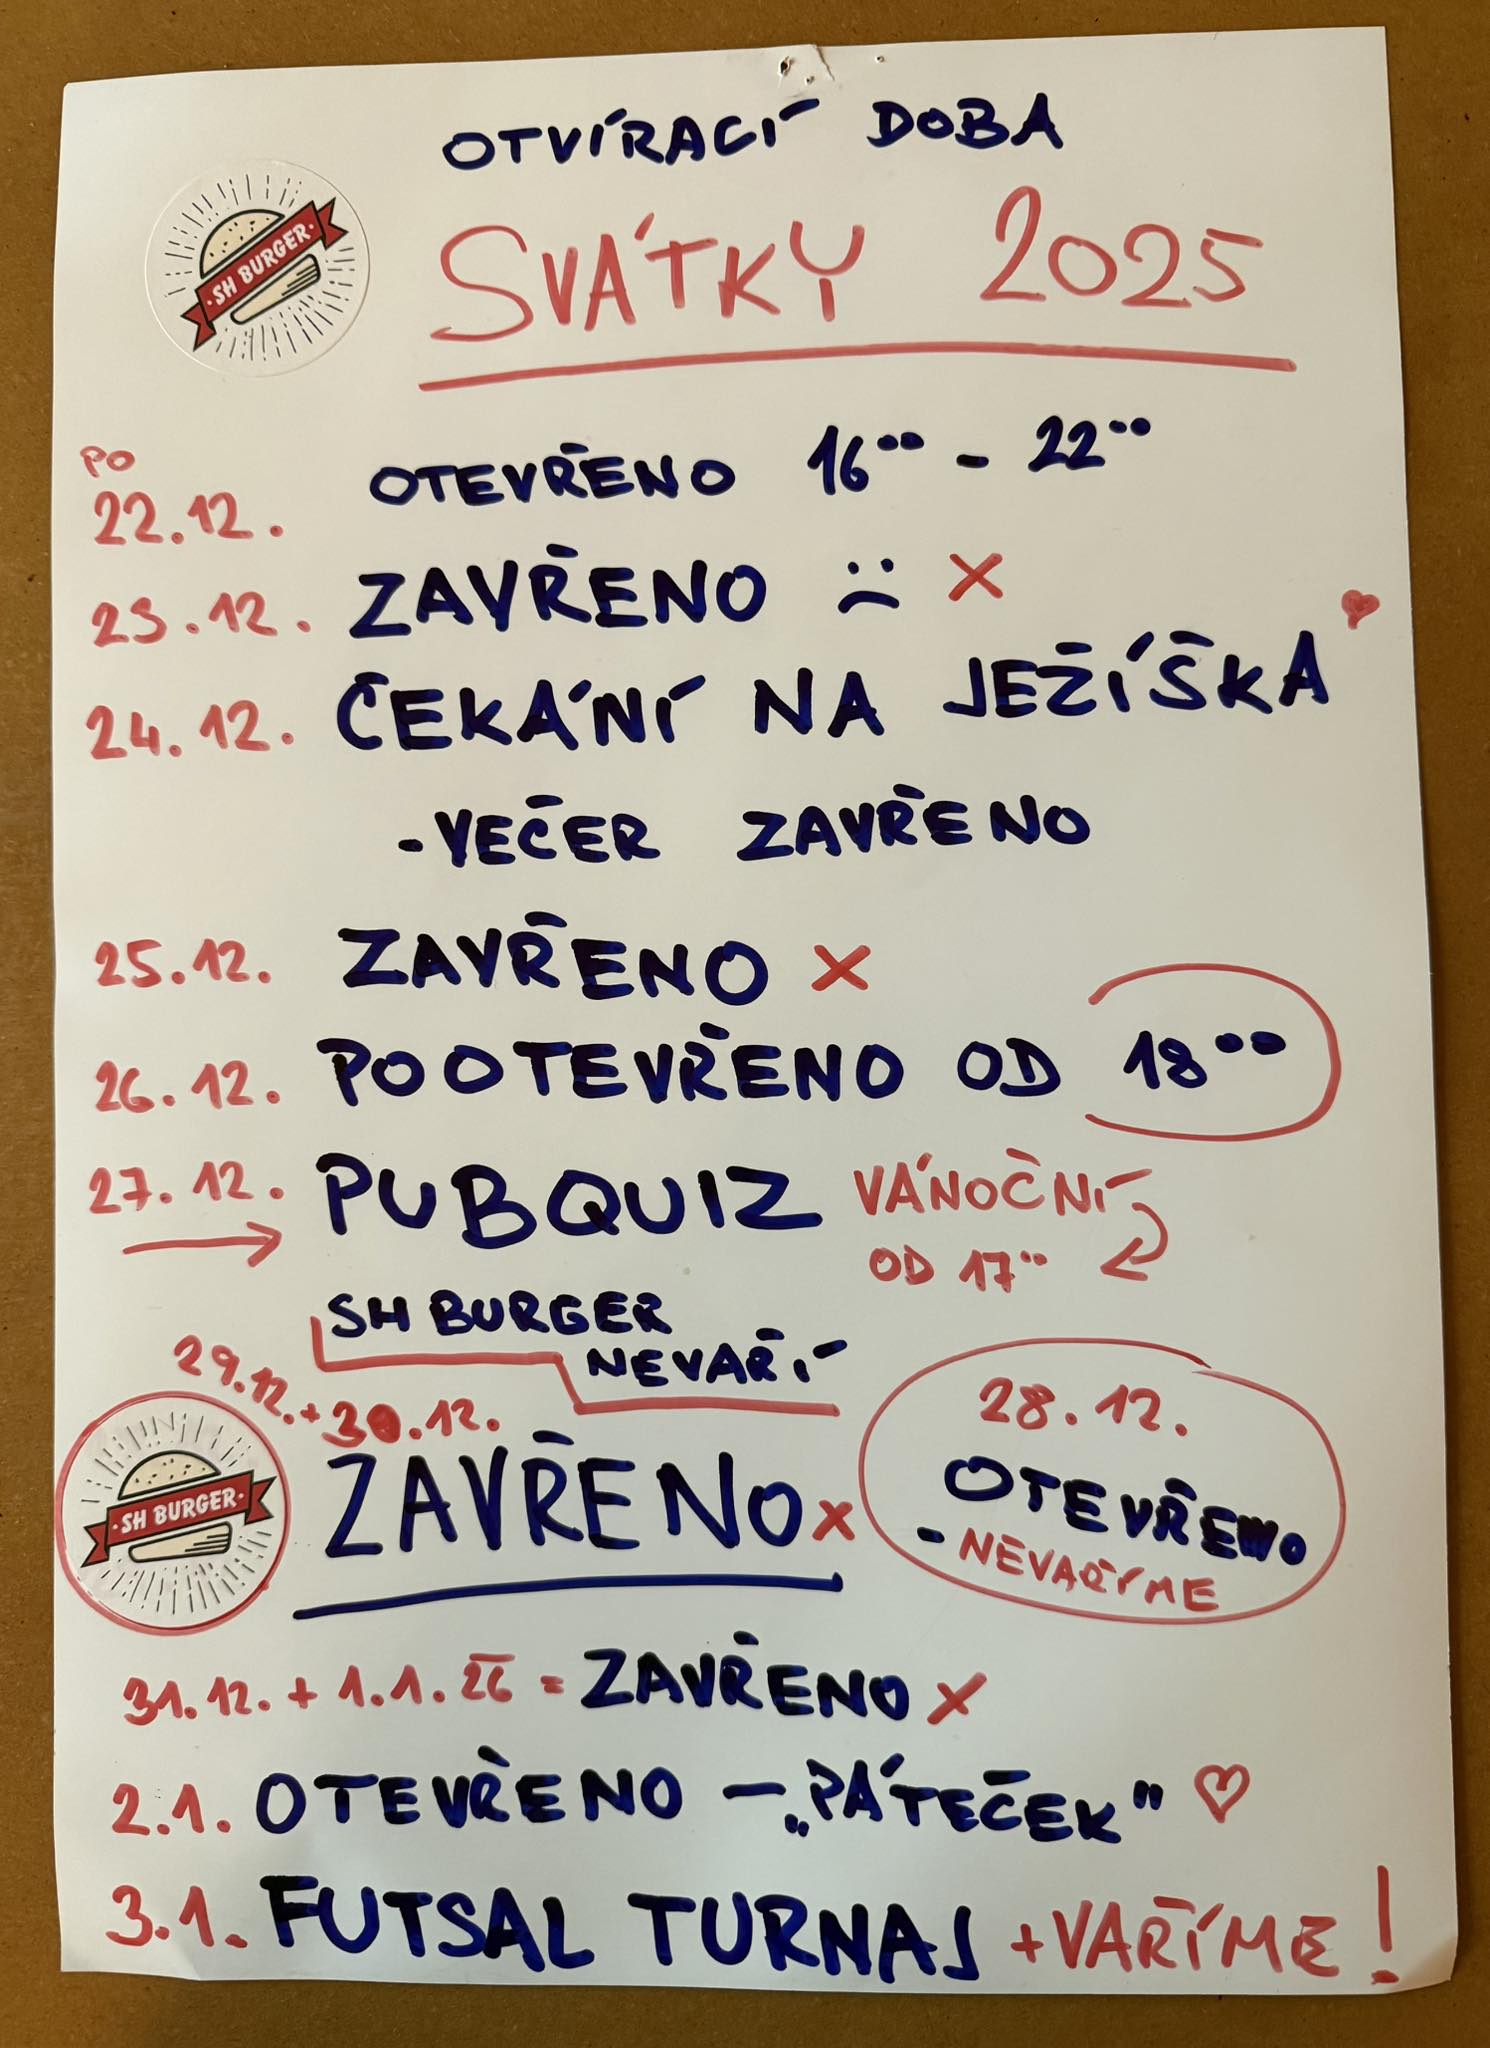 OTVÍRACÍ DOBA
SH BURGER
SVÁTKY 2025
PO
22.12. OTEVŘENO 16⁰⁰ - 22⁰⁰
23.12. ZAVŘENO :( X
24.12. ČEKÁNÍ NA JEŽÍŠKA ♥
-VEČER ZAVŘENO
25.12. ZAVŘENO X
26.12. POOTEVŘENO OD 18⁰⁰
27.12. PUBQUIZ VÁNOČNÍ
→ OD 17⁰⁰
SH BURGER
NEVAŘÍ
29.12. + 30.12.
SH BURGER
ZAVŘENO X
28.12.
OTEVŘENO
- NEVAŘÍME
31.12. + 1.1.26 = ZAVŘENO X
2.1. OTEVŘENO – „PÁTEČEK" ♡
3.1. FUTSAL TURNAJ + VAŘÍME!